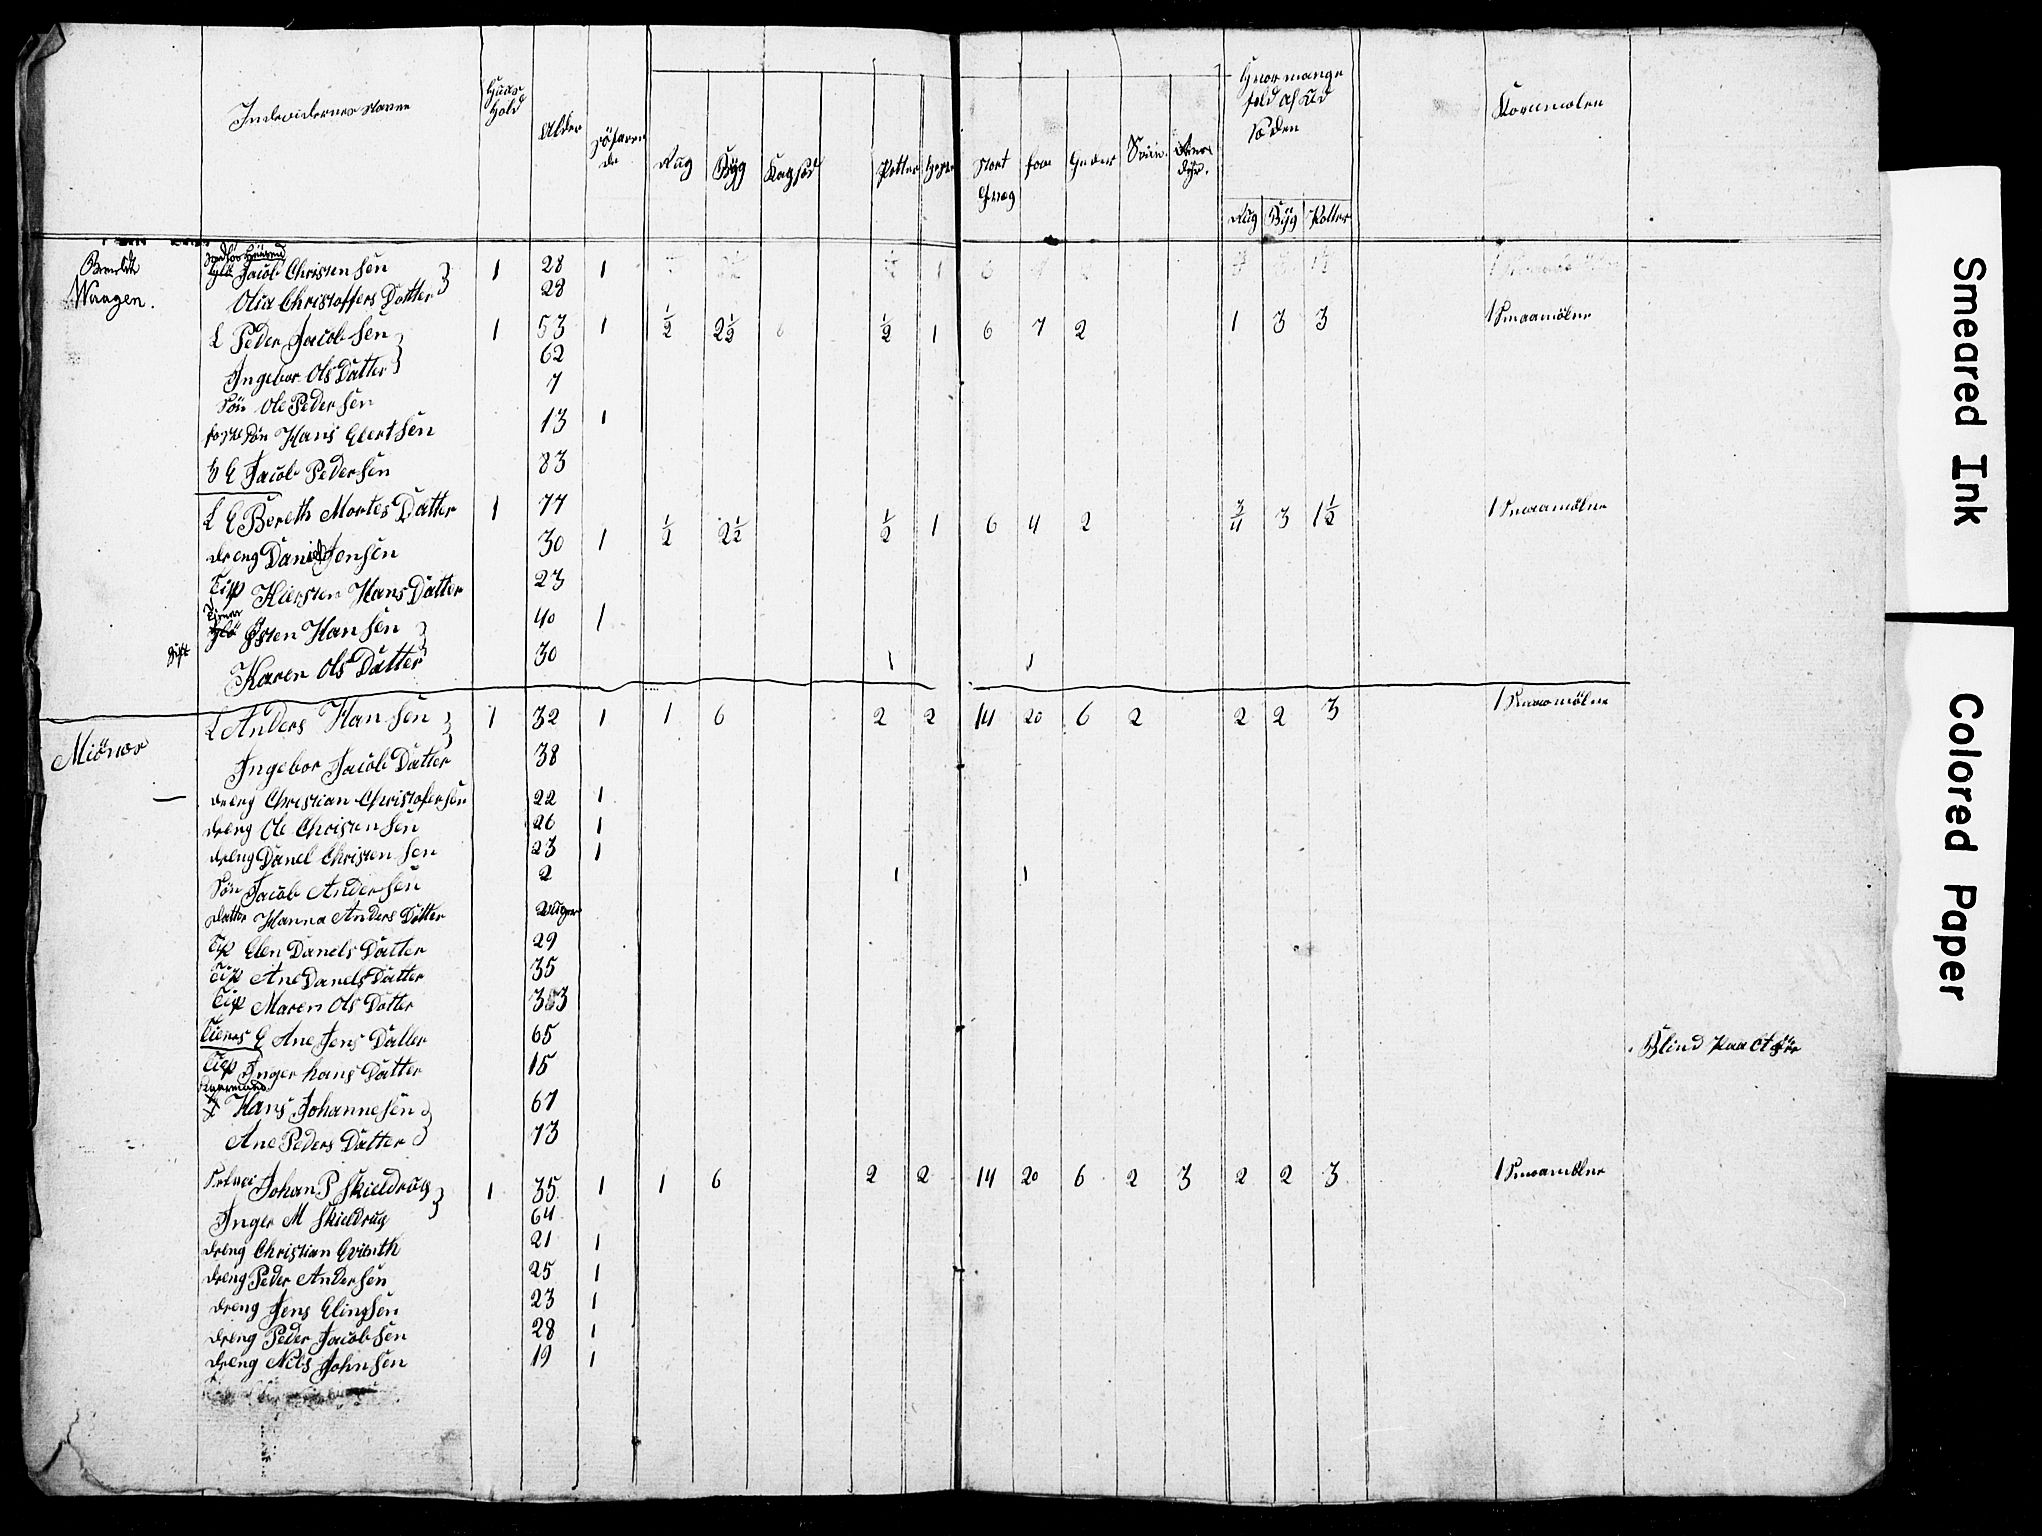 Individernes Navne	Huus Hold	Alder	Söfaren de	Rug	Byg		Potter	Heste	Stort Qvæg	faar	Geder	Sviin		Hvor mange fold af Ud Sæden	Rug	Byg	Potter	Kornmølen
Jacob Christensen	1	28	1
Olia Christoffers Datter	28
Waagen.
L Peder Jacobsen	1	53	1	1/2	2 1/2		1/2	1	6	7	2	1	3	3	1 Smaamølne
Ingebor Ols Datter	62
Sön Ole Pedersen	7
foster Sön Hans Evertsen	13	1
Jacob Pedersen	83
L E Bereth Mortes Datter	1	77		1/2	2 1/2	1/2	1	6	4	2	3/4	3	1 1/2	1 Smaamølne
dreng Daniel Jensen	30	1
Tip Kiersten Hans Datter	23
Östen Hansen	40	1
Karen Ols Datter	30	1	1
Miönes
L Anders Hansen	1	32	1	1	6	2	2	14	20	6	2	2	2	3	1 Smaamølne
Ingebor Jacob Datter	38
dreng Christian Christofersen	22	1
dreng Ole Christensen	26	1
dreng Danel Christensen	23	1
Sön Jacob Andersen	2	1	1
datter Hanna Anders Datter	2 uger
Tip Elen Danels Datter	29
Tip Ane Danels Datter	35
Tip Maren Ols Datter	33
E Ane Jens Datter	65	Blind
Tip Inger hans Datter	15
Hans Johannesen	67
Ane Peders Datter	73
Johan P Skieldrug	1	35	1	1	6	2	2	14	20	6	2	3	2	2	3	1 Smaamølne
Inger M Skieldrug	64
dreng Christian Qvinth	21	1
dreng Peder Andersen	25	1
dreng Jens Elingsen	23	1
dreng Peder Jacobsen	28	1
dreng Nils Johnsen	19	1
Smeared Ink
Colored Paper